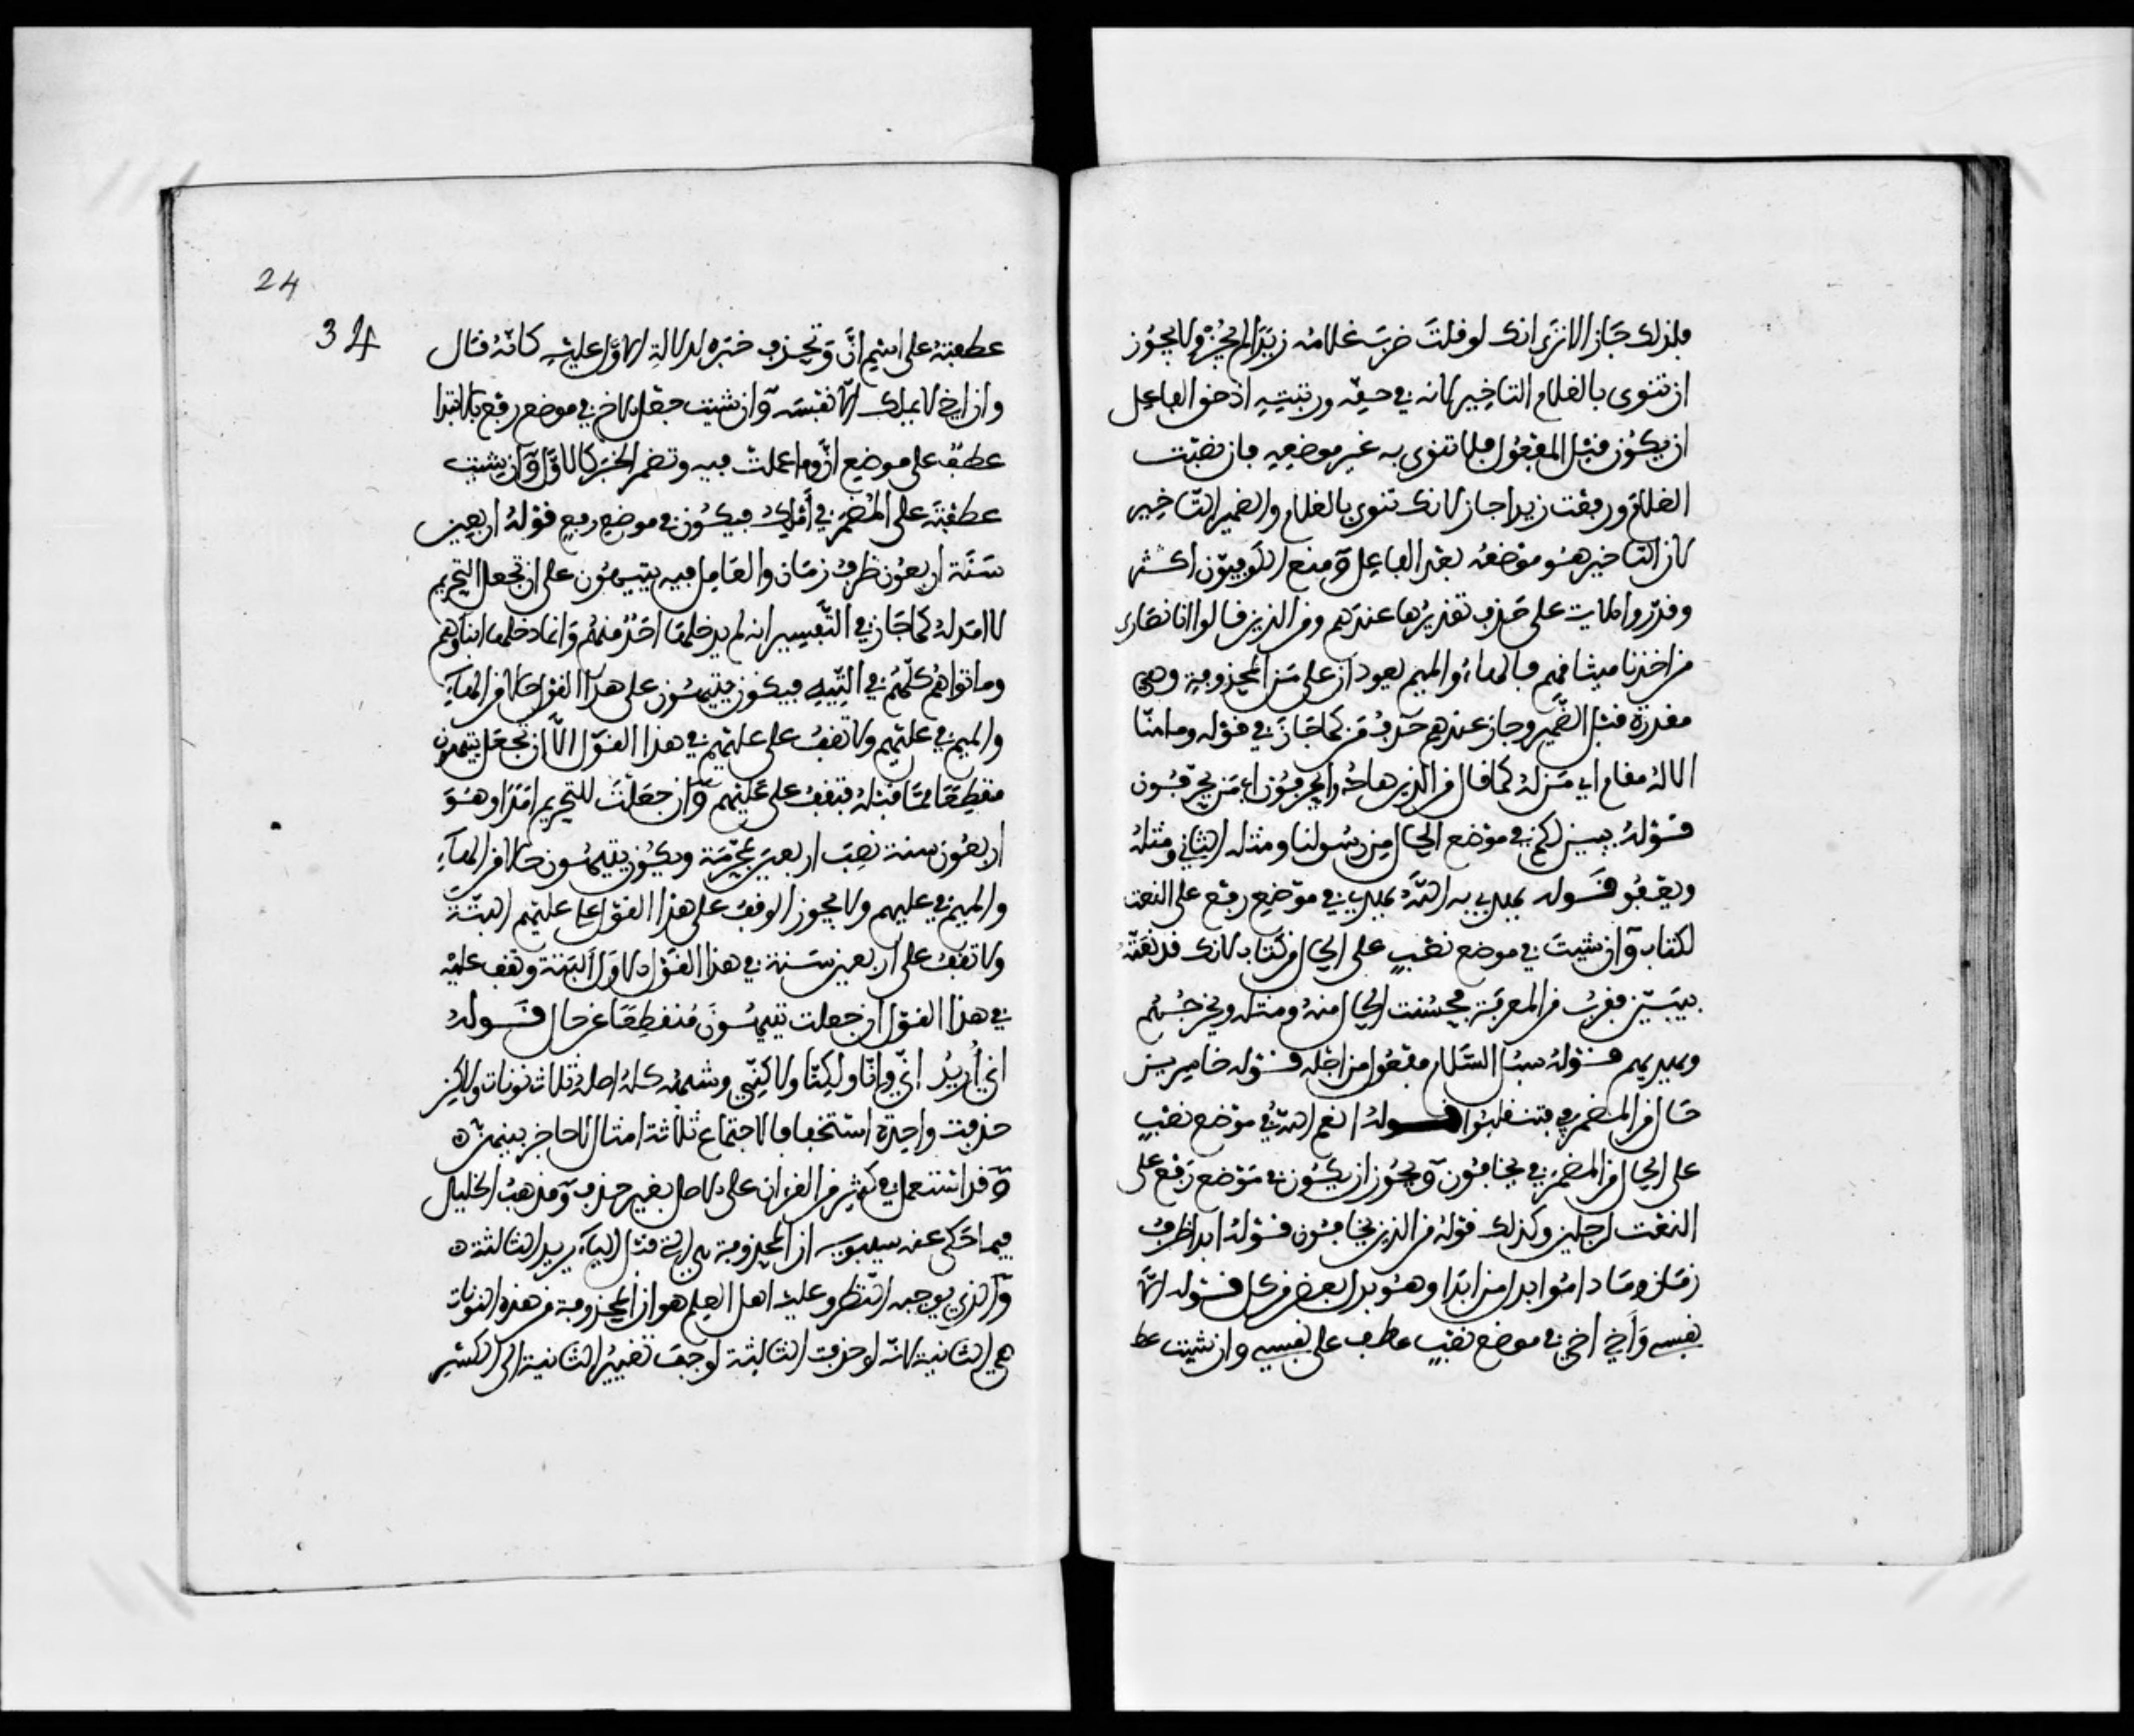 فلذلك جاز الا ترى انك لو قلت ضرب غلامُه زيدا لم يجز ولا يجوز
ان تنوى بالغلام التاخير لانه في حقه ورتبته اذ حق الفاعل
ان يكون قبل المفعول فلا تنوى به غير موضعه فان نصبت
الغلام ورفعت زيدا جاز لانك تنوى بالغلام والضمير التاخير
لان التاخير هو موضعه بعد الفاعل ومنع الكوفيون اكثر
وقدروا الايات على حذف تقديرها عندهم ومن الذين قالوا انا نصارى
من اخذنا ميثاقهم فالهاء والميم يعودان على من المحذوفة وهي
مقدرة قبل الضمير وجاز عندهم حذف من كما جاز في قوله وما منا
الا له مقام اي من له كما قال من الذين هادوا يحرفون اي من يحرفون
قوله يبين لكم في موضع الحال من رسولنا ومثله الثاني ومثله
ويعفو قوله يهدي به الله يهدي في موضع رفع على النعت
لكتاب وان شيت في موضع نصب على الحال من كتاب لانك قد نعته
بمبين فقرب من المعرفة فحسنت الحال منه ومثله ويخرجهم
ويهديهم قوله سبل السلام مفعول من اجله قوله خاسرين
حال من المضمر في تنقلبوا قوله انعم الله في موضع نصب
على الحال من المضمر في يخافون ويجوز ان يكون في موضع رفع على
النعت لرجلين وكذلك قوله من الذين يخافون قوله ابدا ظرف
زمان وما داموا بدل من ابدا وهو بدل بعض من كل قوله الا
نفسي وأخي اخي في موضع نصب عطف على نفسي وان شيت عط
24
34
عطفته على اسم انّ وتحذف خبره لدلالة الاول عليه كانه قال
وان اخي لا يملك الا نفسه وان شيت جعلت الاخ في موضع رفع بالابتدا
عطف على موضع انّ وما عملت فيه وتضمر الخبر كالاول وان شيت
عطفته على المضمر في أملك فيكون في موضع رفع قوله اربعين
سنة اربعون ظرف زمان والعامل فيه يتيهون على ان تجعل التحريم
لا امد له كما جاز في التفسير انه لم يدخلها احد منهم وانما دخلها ابناؤهم
وماتوا هم كلهم في التيه فيكون يتيهون على هذا القول حالا من الهاء
والميم في عليهم ولا تقف على عليهم في هذا القول الا ان تجعل يتيهون
منقطعا مما قبله فتقف على عليهم وان جعلت للتحريم امدا وهو
اربعون سنة نصبت اربعين بمحرمة ويكون يتيهون حالا من الهاء
والميم في عليهم ولا يجوز الوقف على هذا القول على عليهم البتة
ولا تقف على اربعين سنة في هذا القول الاول البتة وتقف عليه
في هذا القول ان جعلت يتيهون منقطعا غير حال قوله
اني أريد اني وانا ولكنا ولكني وشبهه كله اصله ثلاث نونات ولكن
حذفت واحدة استخفافا لاجتماع ثلاثة امثال لا حاجز بينهن
وقد استعمل في كثير من القران على الاصل بغير حذف ومذهب الخليل
فيما حكى عنه سيبويه ان المحذوفة هي التي قبل الياء يريد الثالثة
والذي يوجبه النظر وعليه اهل العلم هو ان المحذوفة من هذه النونات
هي الثانية لانه لو حذفت الثالثة لوجب تغيير الثانية الى الكسر